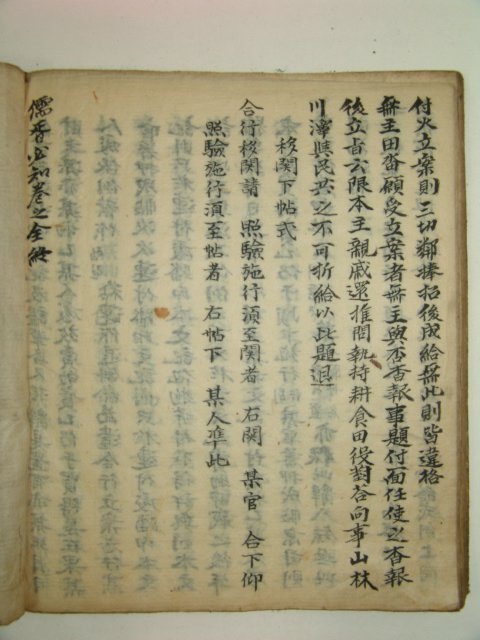 付火立案則三切鄰捧招後成給無此則皆違格
無主田畓願受立案者無主與否査報事題付面任使之査報
後立旨云限本主親戚還推間執持耕食田役對答向事山林
川澤與民共之不可折給以此題退
移関下帖式
合行移関請　照驗施行須至関者　右関　某官　合下仰
照驗施行須至帖者　右帖下　某人準此
儒胥必知卷之全終